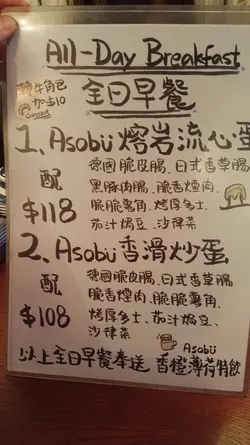 All-Day Breakfast
牛角包
加$10
Croissant
全日早餐
1、Asobü熔岩流心蛋
配
德國脆皮腸、日式香草腸
黑豚肉腸、脆香煙肉、
$118
脆脆薯角、烤厚多士、
茄汁焗豆、沙律菜
2、Asobü香滑炒蛋
配
德國脆皮腸、日式香草腸
脆香煙肉、脆脆薯角、
$108
烤厚多士、茄汁焗豆、
沙律菜
Asobü
以上全日早餐奉送 香橙薄荷特飲